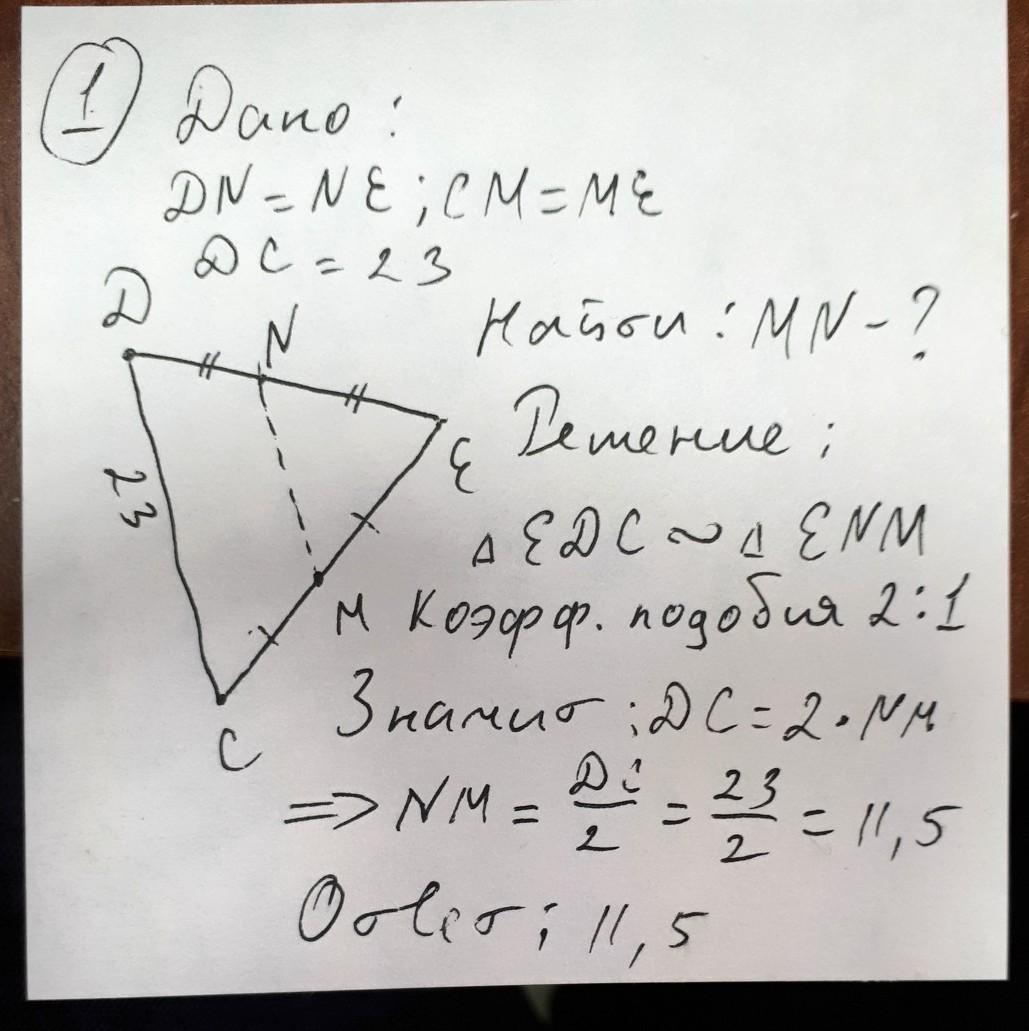 1 Дано:
DN = NE; CM = ME
DC = 23
D
N
Найти: MN - ?
E
Решение:
23
△ EDC ~ △ ENM
M
Коэфф. подобия 2:1
C
Значит: DC = 2 · NM
=> NM = DC/2 = 23/2 = 11,5
Ответ: 11,5